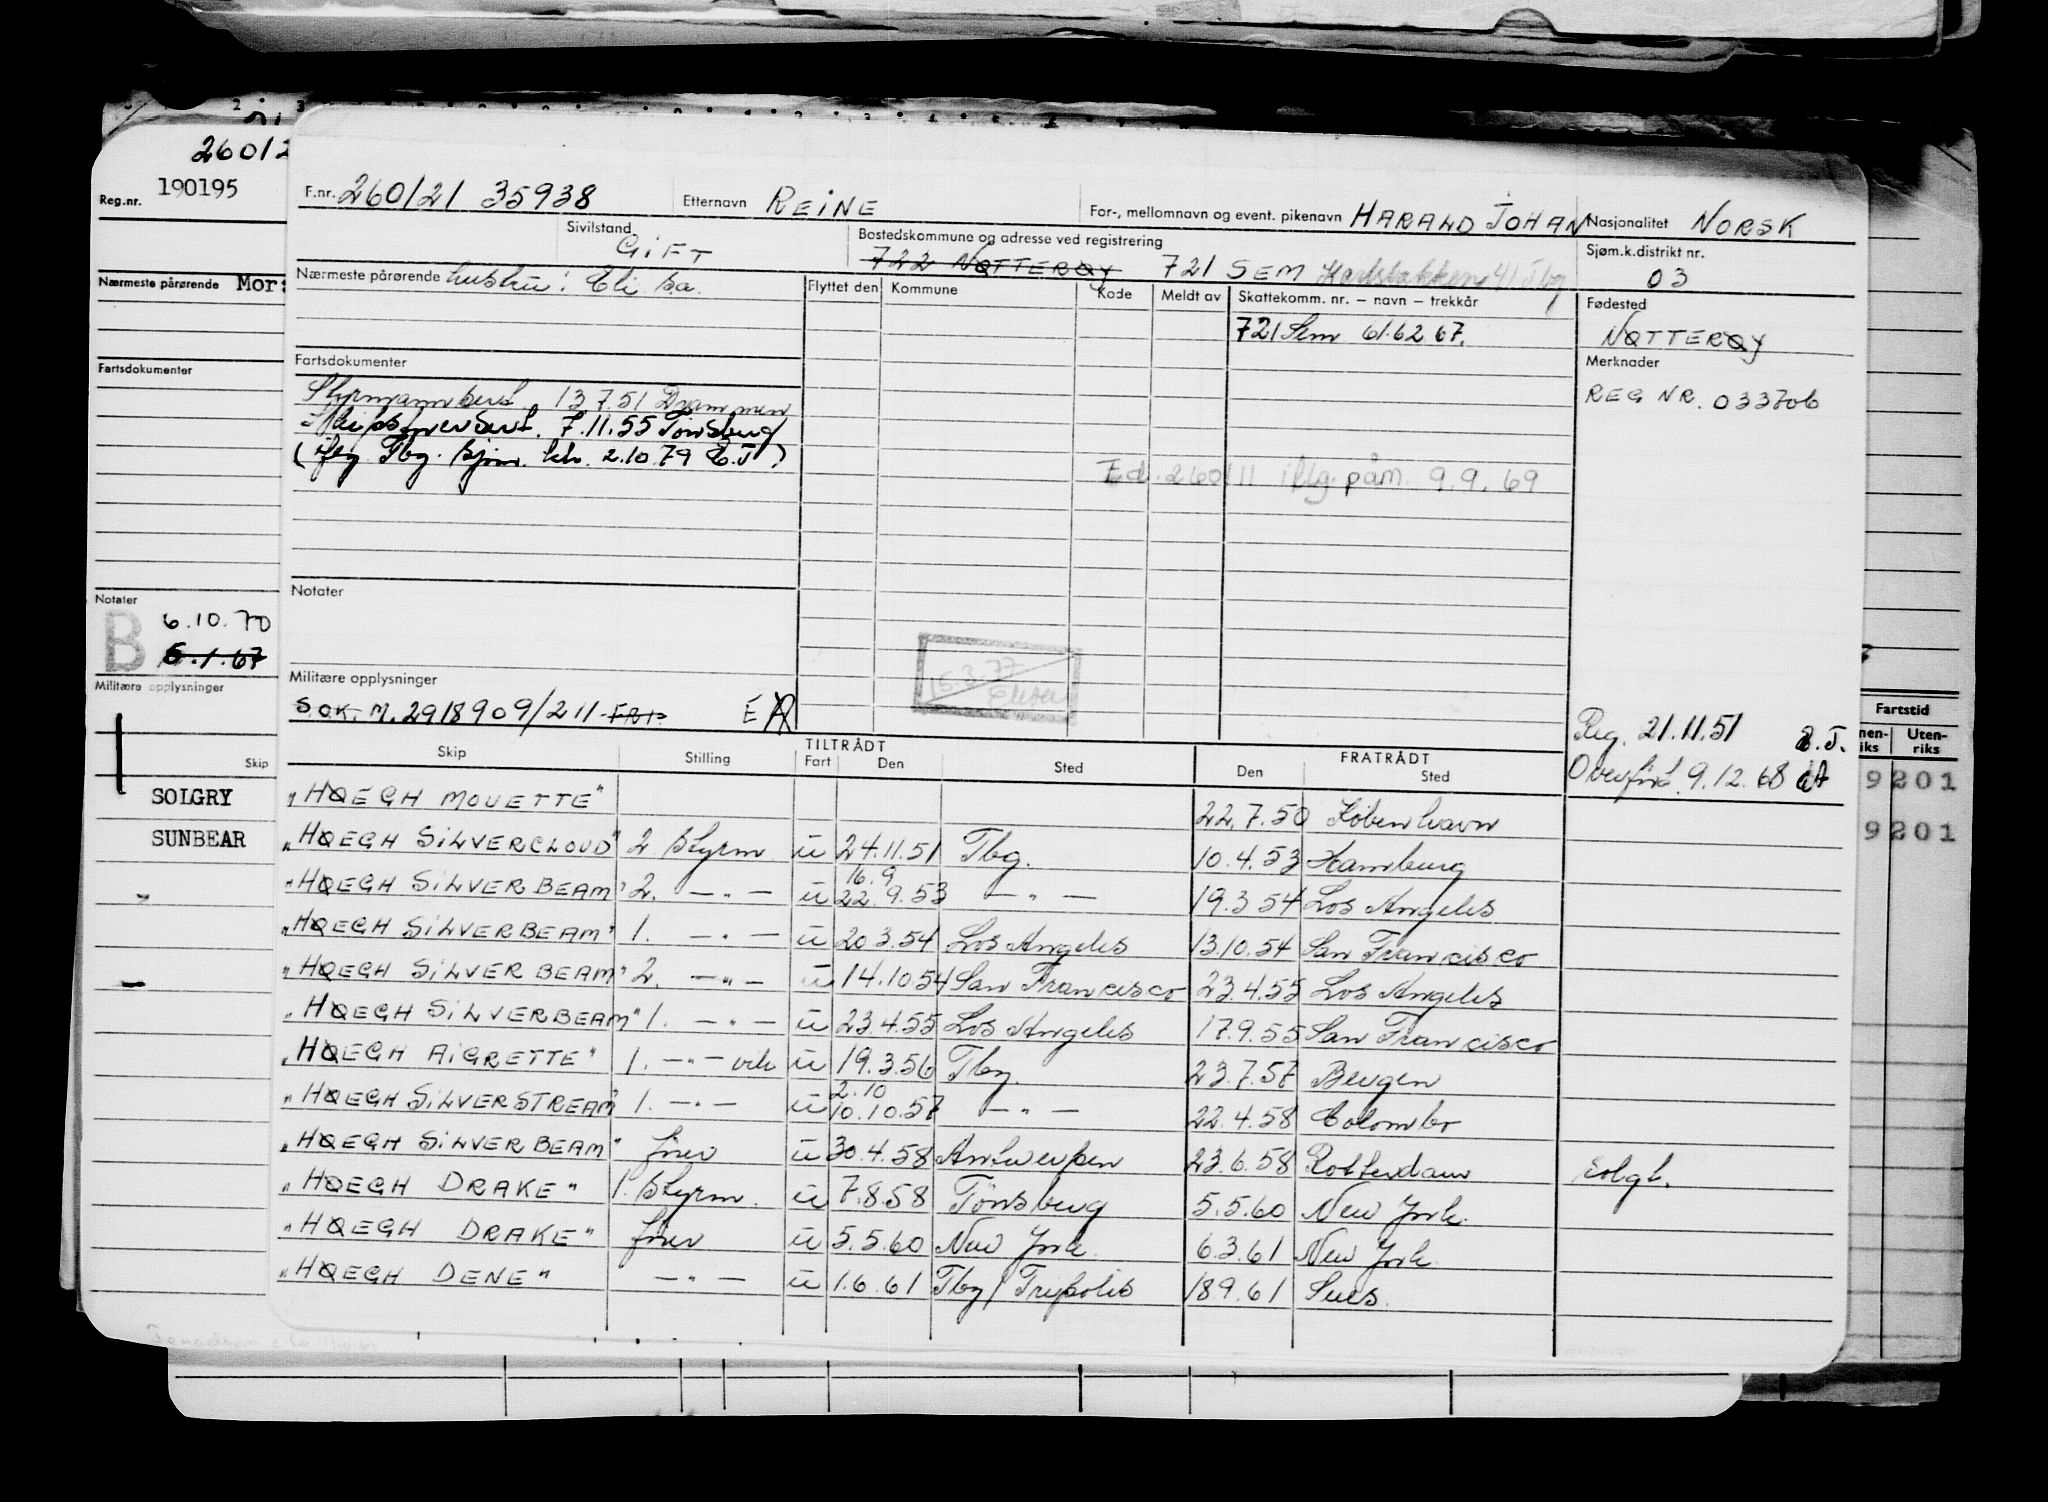 260/2
Reg.nr. 190195
Nærmeste pårørende Mor:
Fartsdokumenter
Notater
B 6.10.70
6.1.67
Militære opplysninger
Skip
SOLGRY
SUNBEAR
F.nr. 260121 35938 Etternavn REINE For-, mellomnavn og event. pikenavn HARALD JOHAN Nasjonalitet NORSK
Sivilstand GIFT Bostedskommune og adresse ved registrering 722 NØTTERØY 721 SEM Sjøm.k.distrikt nr. 03
Nærmeste pårørende hustru: Eli sa. Flyttet den Kommune Kode Meldt av Skattekomm. nr. — navn — trekkår Fødested
721 Sem 61.62 67. NØTTERØY
Fartsdokumenter Merknader
Styrmannsert 13 7.51 Drammen REG NR. 033706
Skipsførersert. 7.11.55 Tønsberg
(iflg Tbg. sjøm. ktr. 2.10.79 E.J)
Fd. 260111 iflg. påm. 9.9.69
Notater
15.3.77
Militære opplysninger
S.O.K. M. 2918909/211 E A
Reg. 21.11.51 E.J.
Overført 9.12.68
Skip Stilling TILTRÅDT Fart Den Sted FRATRÅDT Den Sted
"HØEGH MOUETTE" 22.7.50 København
"HØEGH SILVERCLOUD" 2 Styrm u 24.11.51 Tbg. 10.4.53 Hamburg
"HØEGH SILVERBEAM" 2. — " — u 16.9 22.9.53 — " — 19.3 54 Los Angeles
"HØEGH SILVERBEAM" 1. — " — u 20 3.54 Los Angeles 13.10.54 San Francisco
"HØEGH SILVERBEAM" 2. — " — u 14.10.54 San Francisco 23.4.55 Los Angeles
"HØEGH SILVERBEAM" 1. — " — u 23.4.55 Los Angeles 17.9.55 San Francisco
"HØEGH AIGRETTE" 1. — " — vik u 19.3.56 Tbg. 23.7.57 Bergen
"HØEGH SILVERSTREAM" 1. — " — u 2.10 10.10.57 — " — 22.4.58 Colombo
"HØEGH SILVERBEAM" fører u 30.4.58 Antwerpen 23.6.58 Rotterdam solgt.
"HØEGH DRAKE" 1. Styrm. u 7.8.58 Tönsberg 5.5.60 New York.
"HØEGH DRAKE" fører u 5.5.60 New York. 6.3.61 New York
"HØEGH DENE" — " — u 1.6.61 Tbg/Tripolis 18.9.61 Sues.
Fartstid
nen-riks Uten-riks
9 201
9 201